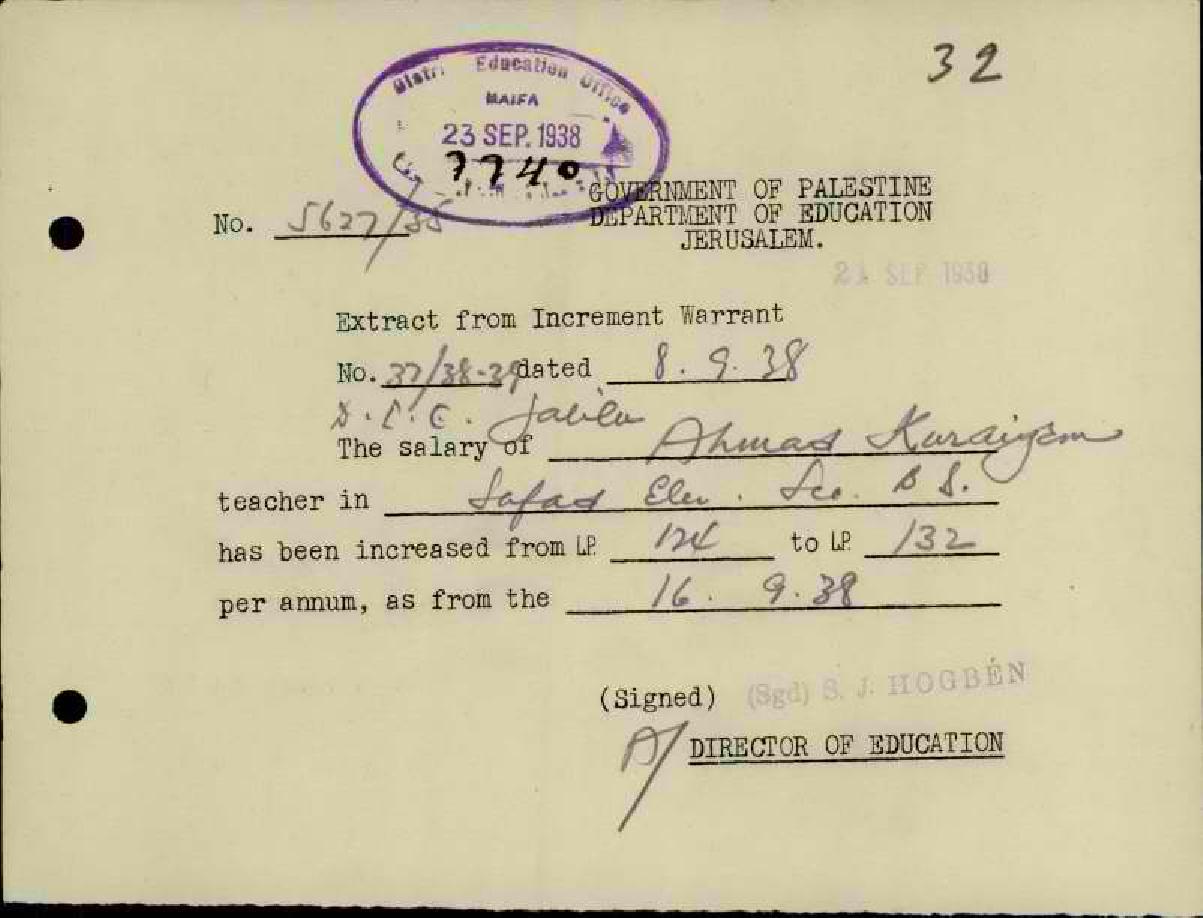 32
Distri Education Office
HAIFA
23 SEP. 1938
7740
GOVERNMENT OF PALESTINE
DEPARTMENT OF EDUCATION
JERUSALEM.
No. 5627/35
21 SEP 1938
Extract from Increment Warrant
No. 37/38-39 dated 8.9.38
Galilee
The salary of Ahmad Kuraiyem
teacher in Safad Elem. Sec. B S.
has been increased from LP. 124 to LP. 132
per annum, as from the 16. 9.38
(Signed) (Sgd) S. J. HOGBÉN
A/ DIRECTOR OF EDUCATION